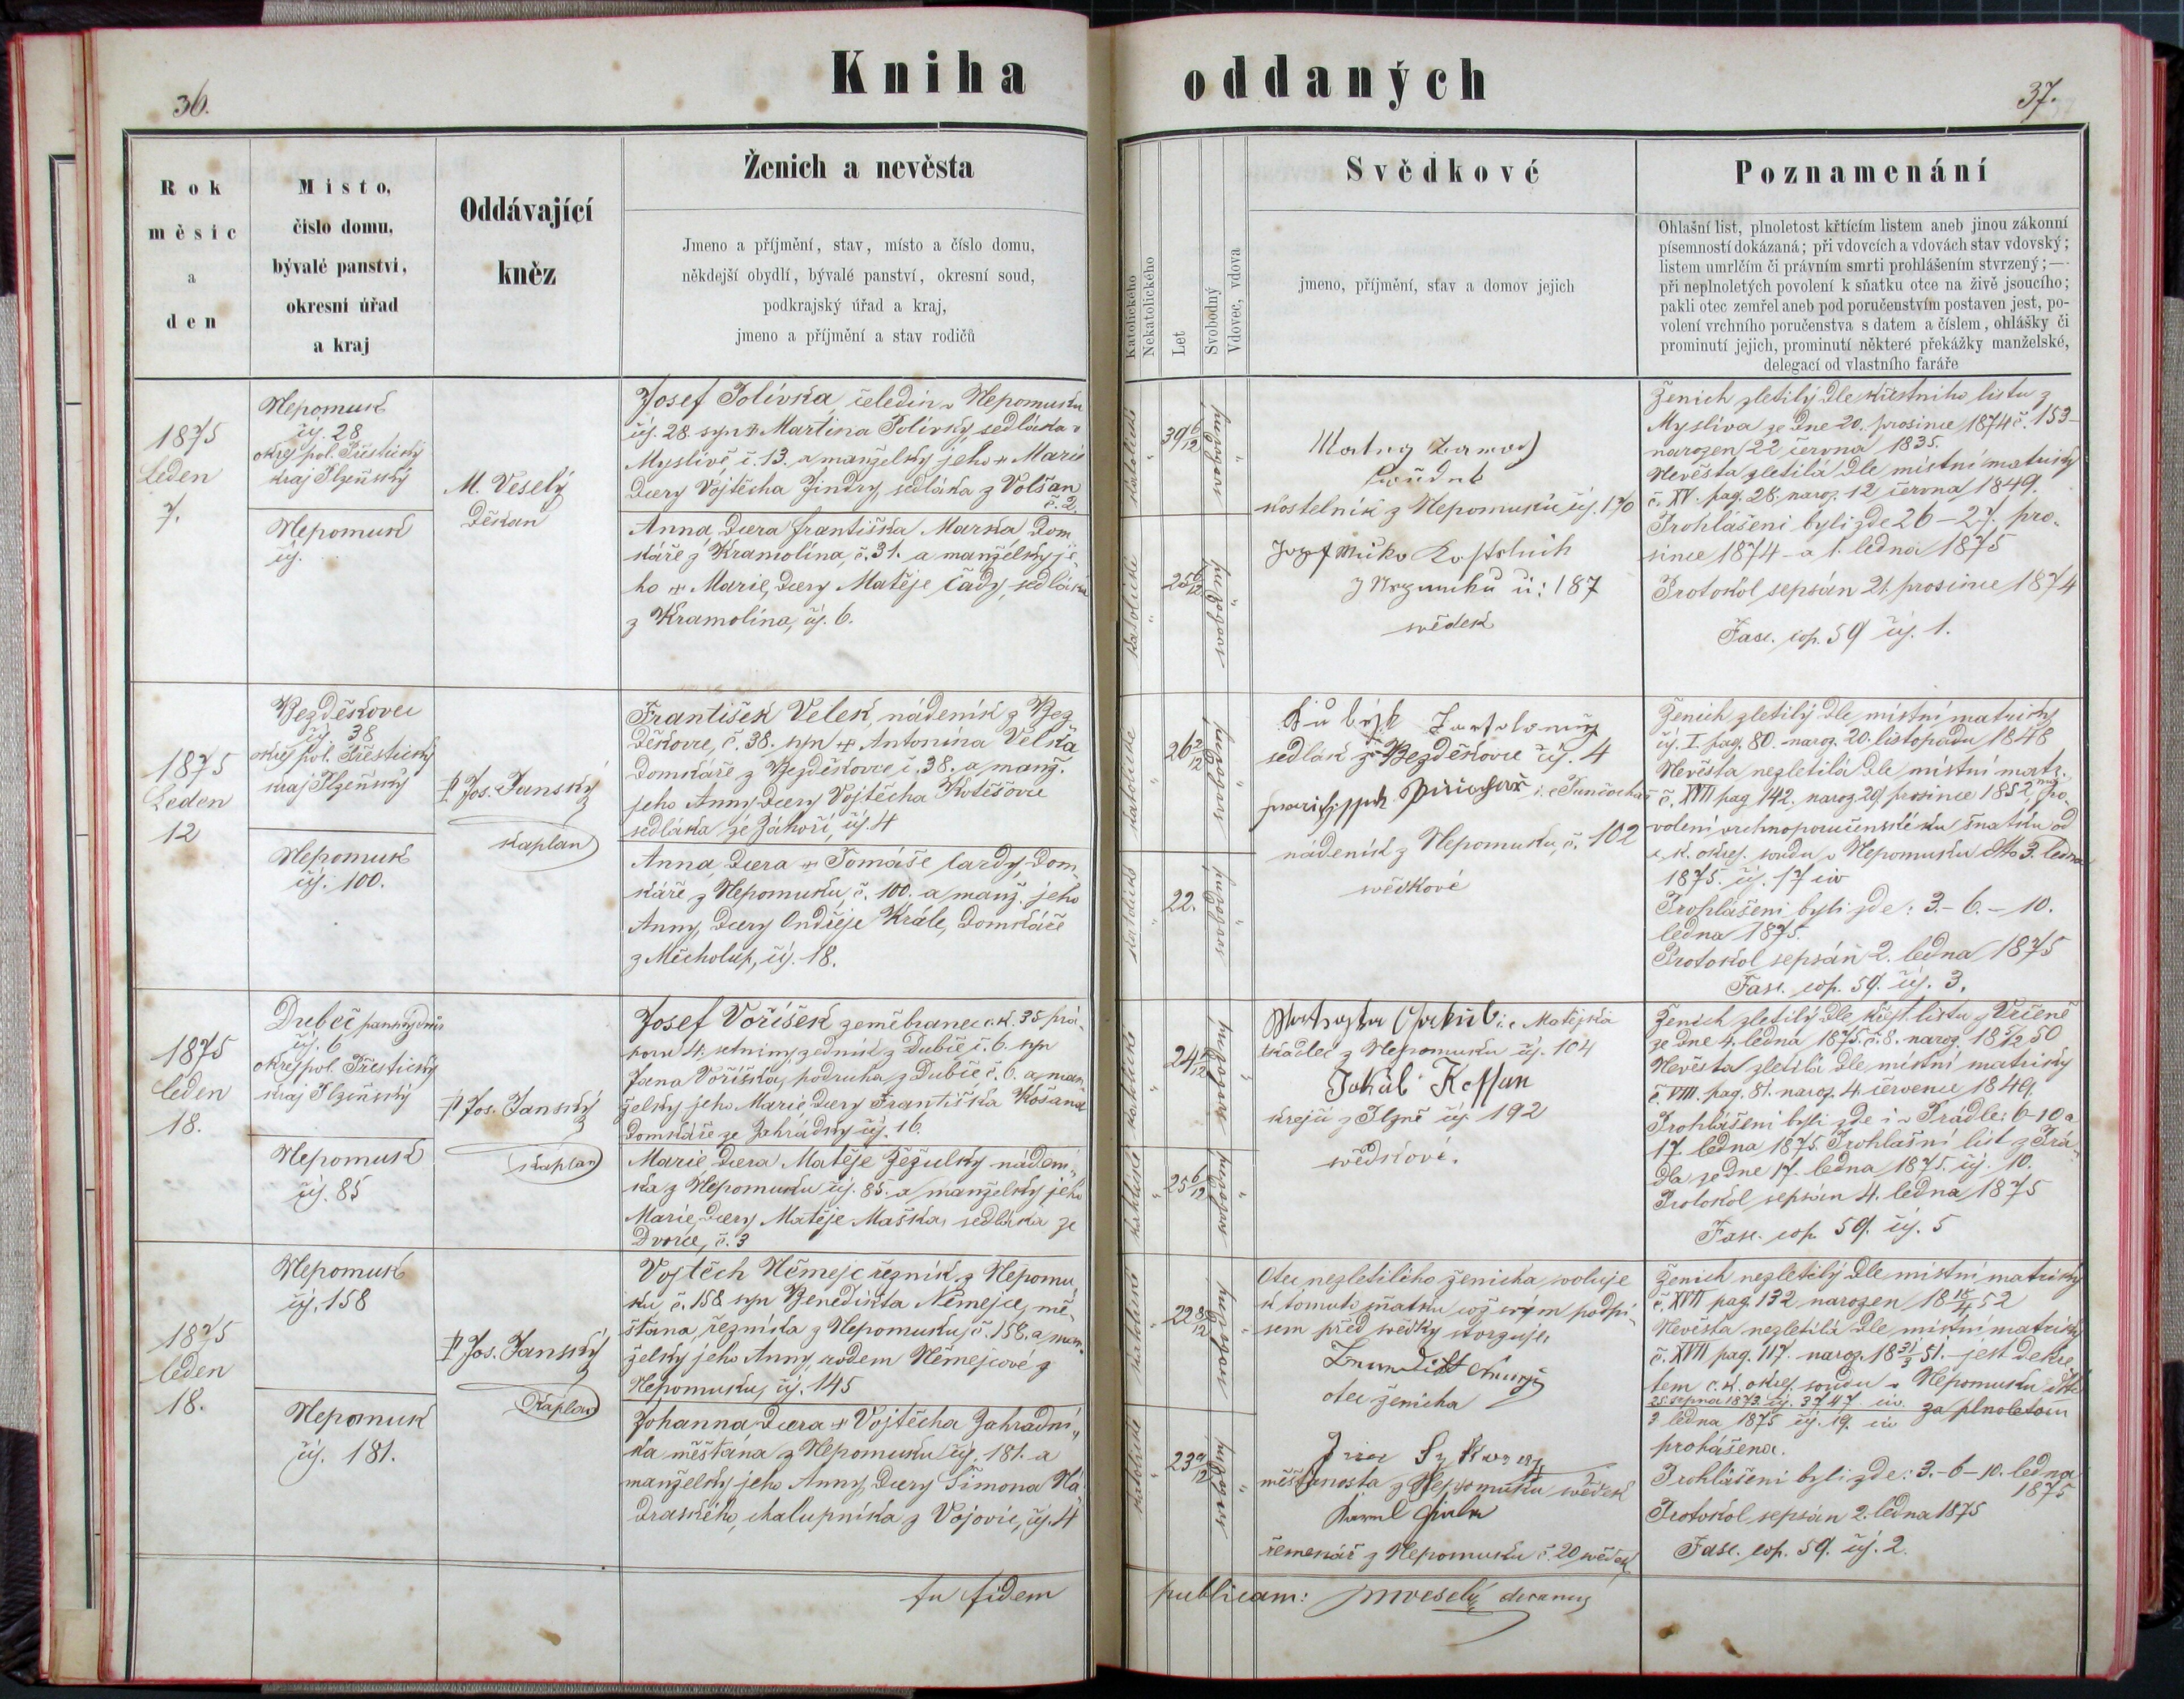 Kniha oddaných
36.
37.
Rok
měsíc
a
den
Místo,
číslo domu,
bývalé panství,
okresní úřad
a kraj
Oddávající
kněz
Ženich a nevěsta
Jmeno a příjmění, stav, místo a číslo domu,
někdejší obydlí, bývalé panství, okresní soud,
podkrajský úřad a kraj,
jmeno a příjmění a stav rodičů
Katolického
Nekatolického
Let
Svobodný
Vdovec, vdova
Svědkové
jmeno, příjmění, stav a domov jejich
Poznamenání
Ohlašní list, plnoletost křtícím listem aneb jinou zákonní
písemností dokázaná; při vdovcích a vdovách stav vdovský;
listem umrlčím či právním smrti prohlášením stvrzený; —
při neplnoletých povolení k sňatku otce na živě jsoucího;
pakli otec zemřel aneb pod poručenstvím postaven jest, po-
volení vrchního poručenstva s datem a číslem, ohlášky či
prominutí jejich, prominutí některé překážky manželské,
delegací od vlastního faráře
1875
Leden
7.
Nepomuk
čj. 28
okrej pol. Přeštický
kraj Plzeňský
Nepomuk
čj.
M. Veselý
Děkan
Josef Polívka, čeledín v Nepomuku
čj. 28. syn + Martina Polívky, sedláka v
Myslívě, č. 13. a manželky jeho + Marie
dcery Vojtěcha Jindry, sedláka z Volšan
č. 2.
Anna, dcera Františka Marka, dom
káře z Kramolína, č. 31. a manželky je
ho + Marie, dcery Matěje Čady, sedláka
z Kramolína, čj. 6.
katolické
39 6/12
svobodný
katolické
25 6/12
svobodná
kostelník z Nepomuku čj. 170
ú: 187
svědek
Ženich zletilý dle křestního listu z
Myslíva ze dne 20. prosince 1874 č. 153
narozen 22 června 1835.
Nevěsta zletilá dle místní matriky
č. XV. pag. 28. naroz. 12 června 1849.
Prohlášeni byli zde 26 – 27. pro-
since 1874 – a 1. ledna 1875
Protokol sepsán 21. prosince 1874
Fasc. cop. 59 čj. 1.
1875
Leden
12
Bezděkovec
čj. 38
okrej pol. Přeštický
kraj Plzeňský
Nepomuk
čj. 100.
P. Jos. Janský
kaplan
František Velek, nádeník z Bez
děkovce, č. 38. syn + Antonína Velka
domkáře z Bezděkovce č. 38. a manž.
jeho Anny dcery Vojtěcha Kotěšovce
sedláka ze Záhoří, čj. 4
Anna, dcera + Tomáše Cardy, dom
káře z Nepomuku, č. 100. a manž. jeho
Anny, dcery Ondřeje Krále, domkáře
z Měcholup, čj. 18.
katolické
26 2/12
svobodný
katolická
22.
svobodná
sedlák z Bezděkovce čj. 4
nádeník z Nepomuku, č. 102
svědkové
Ženich zletilý dle místní matriky
čj. I. pag. 80. naroz. 20. listopadu 1848
Nevěsta nezletilá dle místní matr.
č. XVII pag 142. naroz 29 prosince 1852, po
volení vrchnoporučenské ku sňatku od
c. k. okres. soudu v Nepomuku dtto 3. ledna
1875. čj. 17 civ
Prohlášeni byli zde: 3. – 6. – 10.
ledna 1875.
Protokol sepsán 2. ledna 1875
Fasc. cop. 59. čj. 3.
1875
leden
18.
Dubeč
čj. 6
okrej pol. Přeštický
kraj Plzeňský
Nepomuk
čj. 85
P. Jos. Janský
kaplan
Josef Voříšek zeměbranec c. k. 35 prá-
poru 4. setniny, zedník z Dubče č. 6. syn
Jana Voříška, podruha z Dubče č. 6. a man
želky jeho Marie dcery Františka Košana
domkáře ze Zahrádky čj. 16.
Marie dcera Matěje Žežulky nádení
ka z Nepomuku čj. 85. a manželky jeho
Marie, dcery Matěje Maška, sedláka ze
Dvorce, č. 3
katolické
svobodný
katolické
25 6/12
svobodná
i. e. Matějka
tkadlec z Nepomuku čj. 104
krejčí z Plzně čj. 192
svědkové.
Ženich zletilý dle křest. listu z Vrčeně
ze dne 4. ledna 1875. č. 8. naroz.
Nevěsta zletilá dle místní matriky
č. VIII. pag. 81. naroz. 4. července 1849.
Prohlášeni byli zde i v Prádle: 6-10 a
17. ledna 1875. Prohlašní list z Prá
dla ze dne 17. ledna 1875. čj. 10.
Protokol sepsán 4. ledna 1875
Fasc. cop. 59. čj. 5
1875
leden
18.
Nepomuk
čj. 158
Nepomuk
čj. 181.
P. Jos. Janský
Kaplan
Vojtěch Němejc řezník z Nepomu
ku č. 158 syn Benedikta Němejce, mě-
šťana, řezníka z Nepomuku, č. 158. a man
želky jeho Anny, rodem Němejcové z
Nepomuku, čj. 145
Johanna dcera + Vojtěcha Zahradní
ka měšťana z Nepomuku čj. 181. a
manželky jeho Anny, dcery Šimona Ná
draského, chalupníka z Vojovic, čj. 4
katolické
22 8/12
svobodný
katolické
23 9/12
svobodná
Otec nezletilého ženicha svoluje
k tomuto sňatku což svým podpi-
sem před svědky stvrzuje
otec ženicha
měšťanosta z Nepomuku svědek
řemenář z Nepomuku č. 20 svědek
Ženich nezletilý dle místní matriky
č. XVII pag. 132 narozen 18 18/4 52
Nevěsta nezletilá dle místní matriky
č. XVII pag. 117. naroz. 18 31/3 51. – jest dekre
tem c. k. okres. soudu v Nepomuku dtto
25. srpna 1873. čj. 3747 civ. za plnoletou
3 ledna 1875 čj. 19. civ
prohášena.
Prohlášeni byli zde: 3. – 6 – 10. ledna
1875
Protokol sepsán 2. ledna 1875
Fasc. cop. 59. čj. 2.
fidem publicam: MVeselý decanus